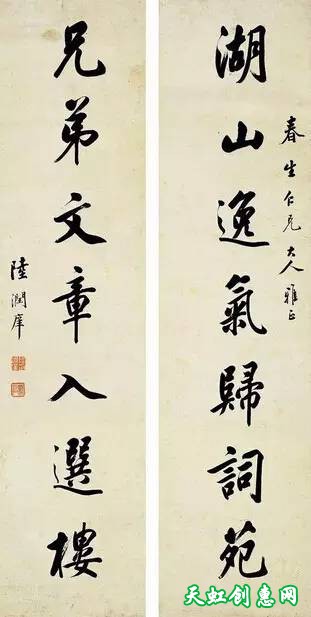 春生仁兄大人雅正
湖山逸氣歸詞苑
兄弟文章入選樓
陸潤庠
天虹创惠网